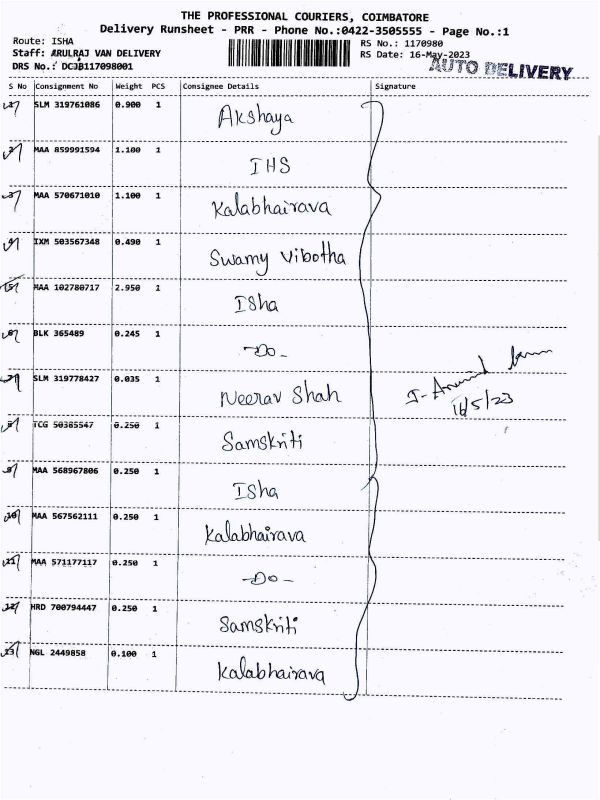 THE PROFESSIONAL COURIERS, COIMBATORE
Delivery Runsheet - PRR - Phone No.:0422-3505555 - Page No.:1
Route: ISHA
RS No.: 1170980
Staff: ARULRAJ VAN DELIVERY
RS Date: 16-May-2023
AUTO DELIVERY
DRS No.: DCJB117098001
S No Consignment No Weight PCS Consignee Details Signature
1 SLM 319761086 0.900 1 Akshaya
2 MAA 859991594 1.100 1 IHS
3 MAA 570671010 1.100 1 Kalabhairava
4 IXM 503567348 0.490 1 Swamy Vibotha
5 MAA 102780717 2.950 1 Isha
6 BLK 365489 0.245 1 -Do-
7 SLM 319778427 0.035 1 Neerav Shah
8 TCG 50385547 0.250 1 Samskriti
16/5/23
9 MAA 568967806 0.250 1 Isha
10 MAA 567562111 0.250 1 Kalabhairava
11 MAA 571177117 0.250 1 -Do-
12 HRD 700794447 0.250 1 Samskriti
13 NGL 2449858 0.100 1 Kalabhairava